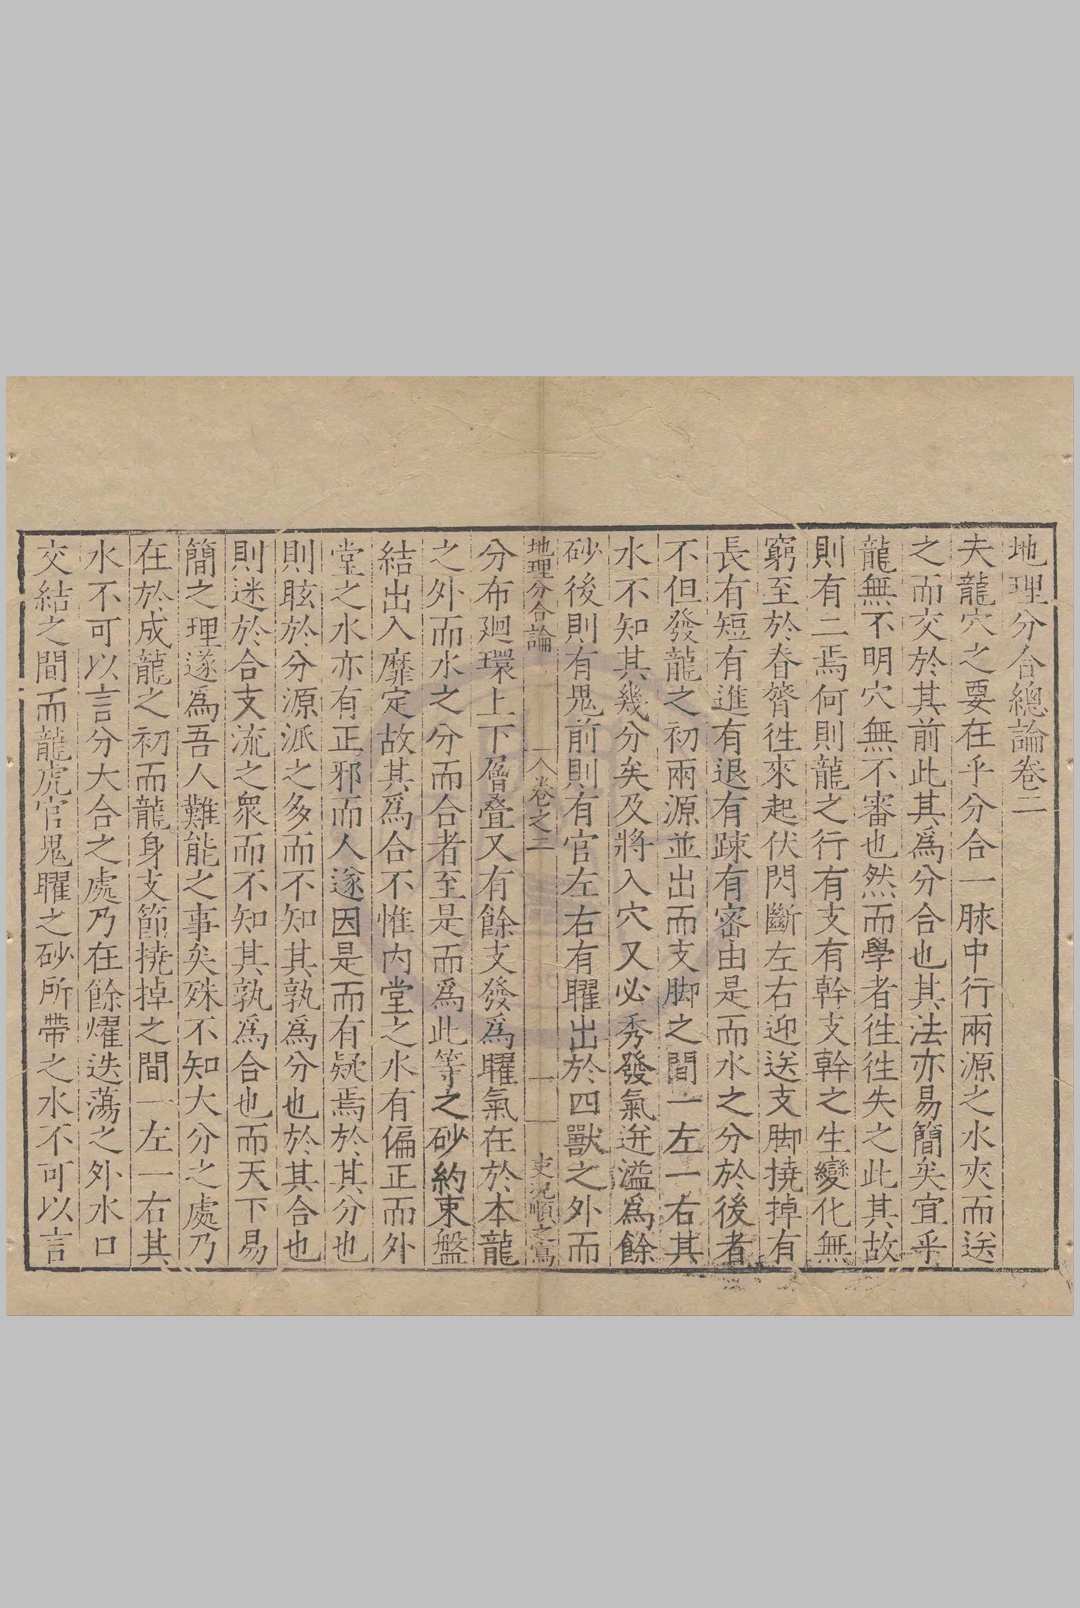 地理分合總論卷二
夫龍穴之要在乎分合一脉中行兩源之水夾而送
之而交於其前此其爲分合也其法亦易簡矣宜乎
龍無不明穴無不審也然而學者徃徃失之此其故
則有二焉何則龍之行有支有幹支幹之生變化無
窮至於眷脊徃來起伏閃斷左右迎送支脚撓掉有
長有短有進有退有踈有密由是而水之分於後者
不但發龍之初兩源並出而支脚之間一左一右其
水不知其幾分矣及將入穴又必秀發氣迸溢爲餘
砂後則有鬼前則有官左右有曜出於四獸之外而
地理分合論 卷之二 一 吏況順之寫
分布廻環上下層叠又有餘支發爲曜氣在於本龍
之外而水之分而合者至是而爲此等之砂約束盤
結出入靡定故其爲合不惟内堂之水有偏正而外
堂之水亦有正邪而人遂因是而有疑焉於其分也
則眩於分源派之多而不知其孰爲分也於其合也
則迷於合支流之衆而不知其孰爲合也而天下易
簡之理遂爲吾人難能之事矣殊不知大分之處乃
在於成龍之初而龍身支節撓掉之間一左一右其
水不可以言分大合之處乃在餘燿迭蕩之外水口
交結之間而龍虎官鬼曜之砂所帶之水不可以言